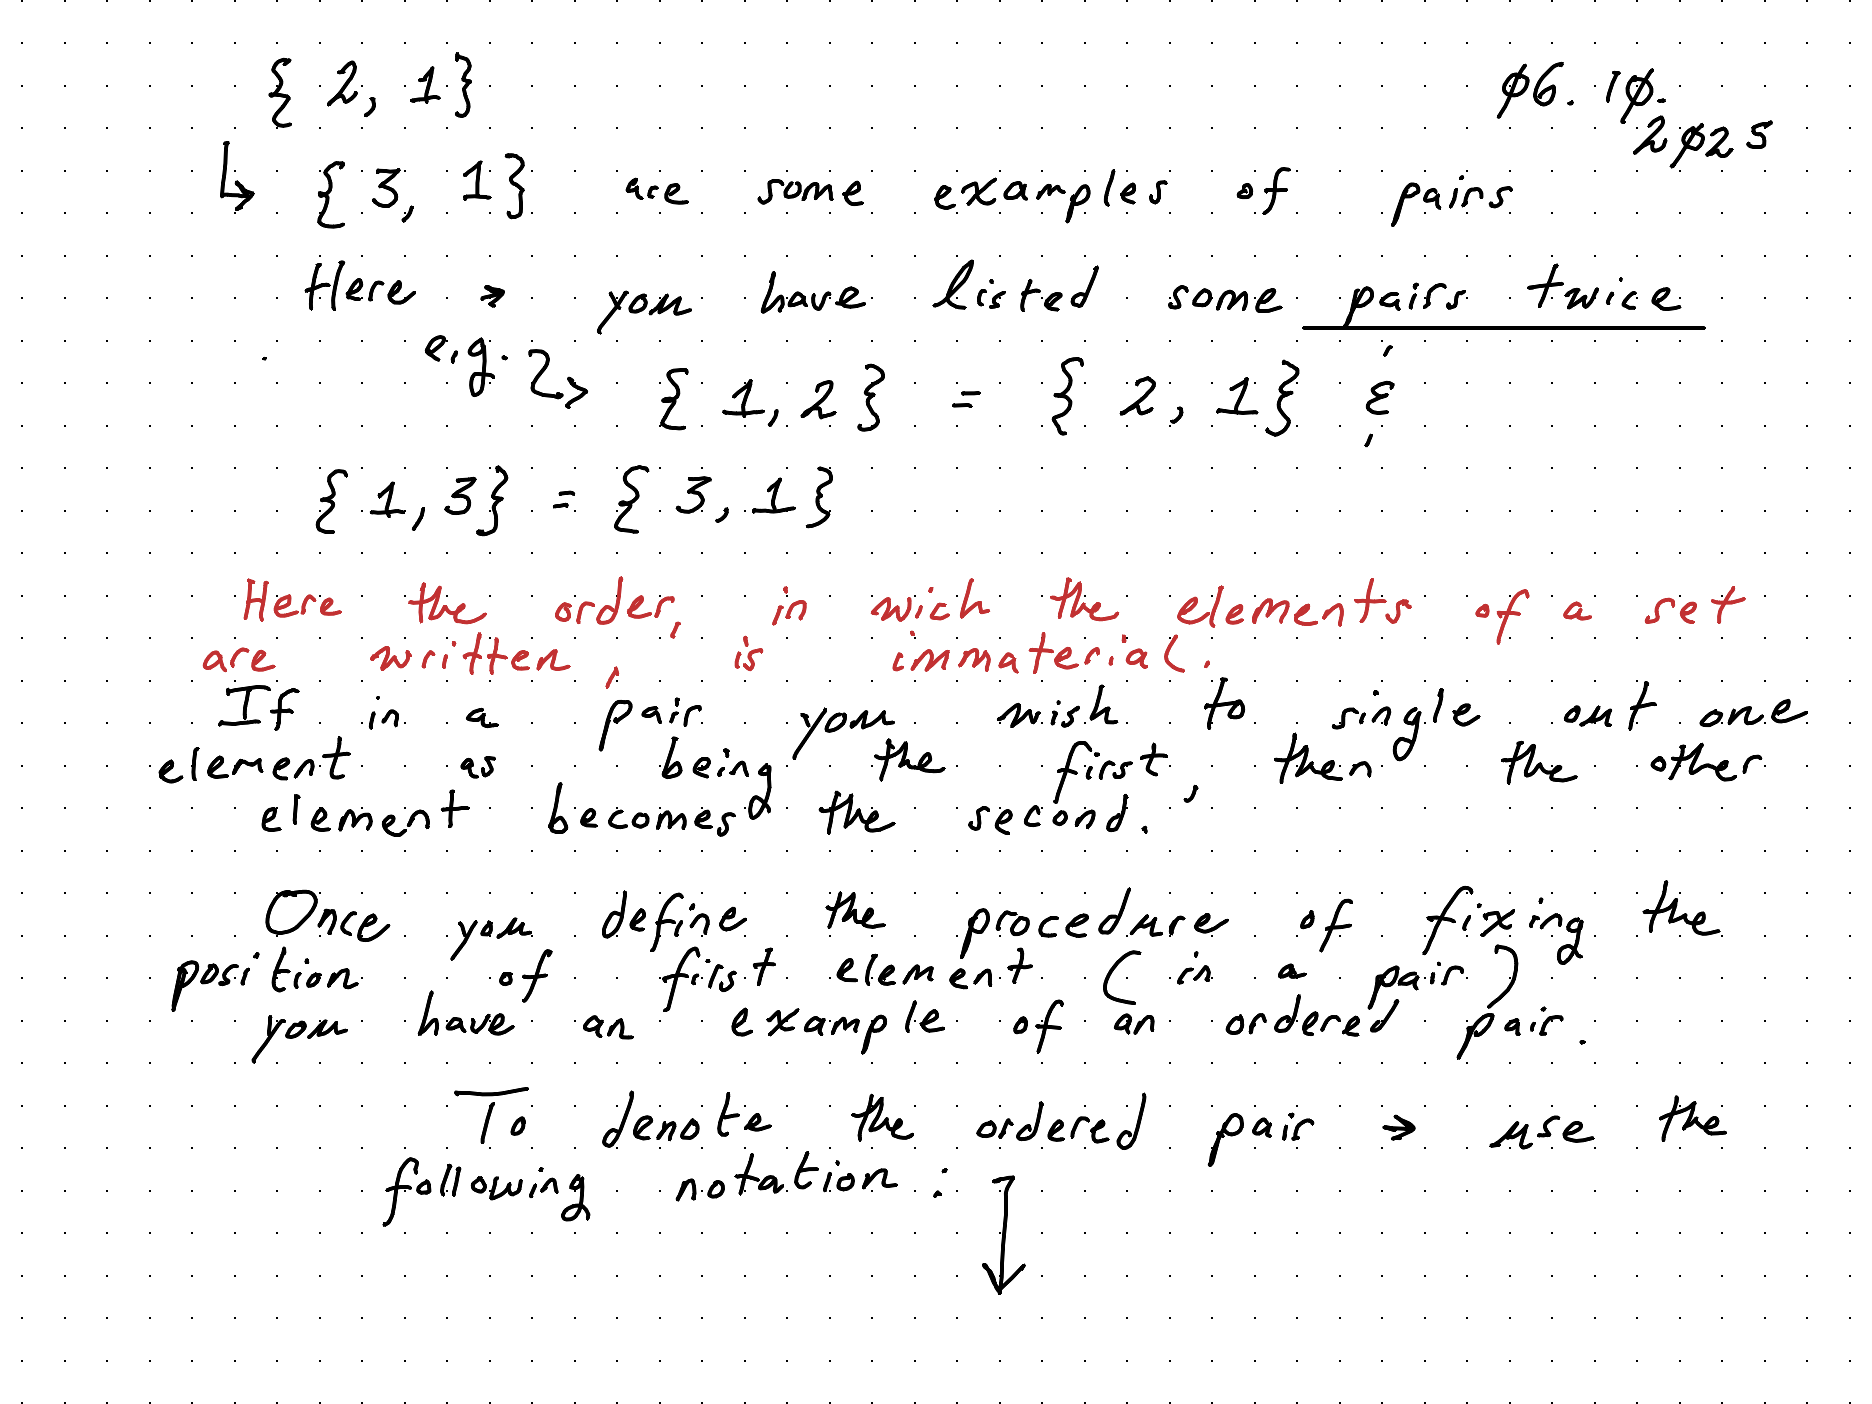 { 2, 1}
ø6. 1ø.
2ø25
↳ { 3, 1} are some examples of pairs
Here → you have listed some pairs twice
e.g. → { 1, 2 } = { 2, 1} &
{ 1, 3} = { 3, 1}
Here the order, in wich the elements of a set
are written, is immaterial.
If in a pair you wish to single out one
element as being the first, then the other
element becomes the second.
Once you define the procedure of fixing the
position of first element ( in a pair )
you have an example of an ordered pair.
To denote the ordered pair → use the
following notation : ↓